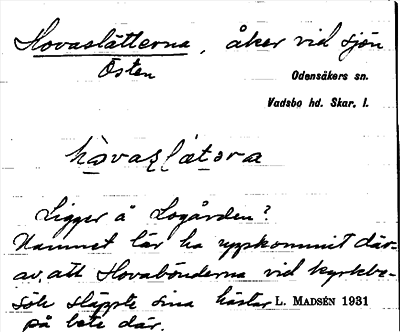 Hovaslätterna, åker vid sjön
Östen
Odensåkers sn.
Vadsbo hd. Skar. l.
hòvaslætəra
Ligger å Logården?
Namnet lär ha uppkommit där-
av, att Hovabönderna vid kyrkbe-
sök släppte sina hästar L. MADSÉN 1931
på bete där.